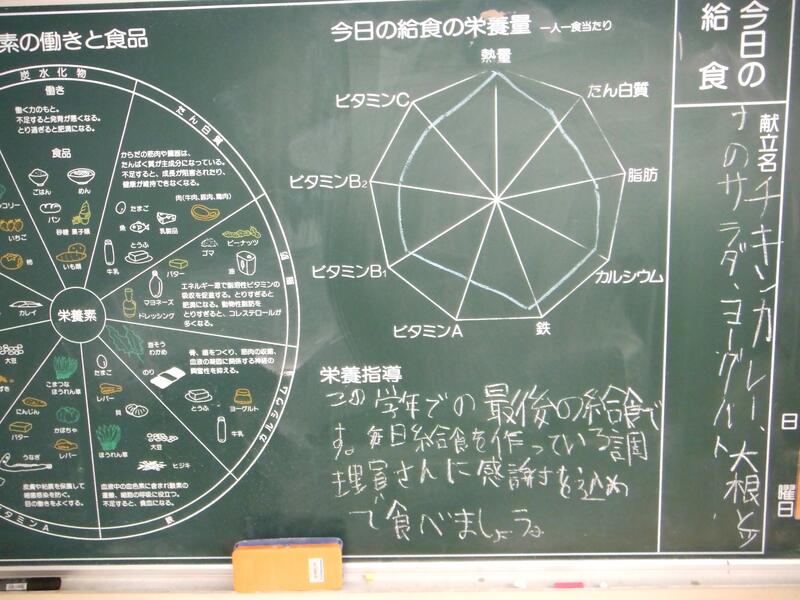 素の働きと食品
炭水化物
働き
働く力のもと。
不足すると発育が悪くなる。
とり過ぎると肥満になる。
食品
ごはん
めん
パン
砂糖 菓子類
いも類
いちご
柿
たん白質
からだの筋肉や臓器は、
たんぱく質が主成分になっている。
不足すると、成長が阻害されたり、
健康が維持できなくなる。
肉(牛肉、豚肉、鶏肉)
たまご
魚
乳製品
とうふ
牛乳
脂肪
ピーナッツ
ゴマ
油
バター
マヨネーズ
ドレッシング
エネルギー源で脂溶性ビタミンの
吸収を促進する。とりすぎると
肥満になる。動物性脂肪を
とりすぎると、コレステロールが
多くなる。
栄養素
カルシウム
骨、歯をつくり、筋肉の収縮、
血液の凝固に関係する神経の
興奮性を抑える。
海そう
わかめ
のり
とうふ
ヨーグルト
牛乳
鉄
たまご
レバー
貝
ほうれん草
大豆
ヒジキ
血液中の血色素に含まれ酸素の
運搬、細胞の呼吸に役立つ。
不足すると、貧血になる。
ビタミンA
こまつな
ほうれん草
にんじん
かぼちゃ
バター
レバー
うなぎ
皮膚や粘膜を保護して
細菌感染を防ぐ。
目の働きをよくする。
カレイ
大豆
今日の給食の栄養量 一人一食当たり
熱量
たん白質
脂肪
カルシウム
鉄
ビタミンA
ビタミンB₁
ビタミンB₂
ビタミンC
栄養指導
この学年での最後の給食で
す。毎日給食を作っている調
理員さんに感謝を込め
て食べましょう。
今日の
給食
献立名
チキンカレー、大根とツ
ナのサラダ、ヨーグルト
日
曜日